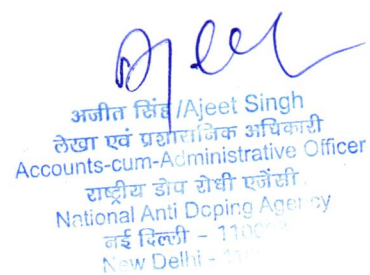 अजीत सिंह/Ajeet Singh
लेखा एवं प्रशासनिक अधिकारी
Accounts-cum-Administrative Officer
राष्ट्रीय डोप रोधी एजेंसी
National Anti Doping Agency
नई दिल्ली -
New Delhi -